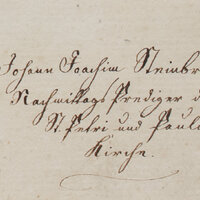 Johann Joachim Steinbr
Nachmittags Prediger d
St. Petri und Paul
Kirche.